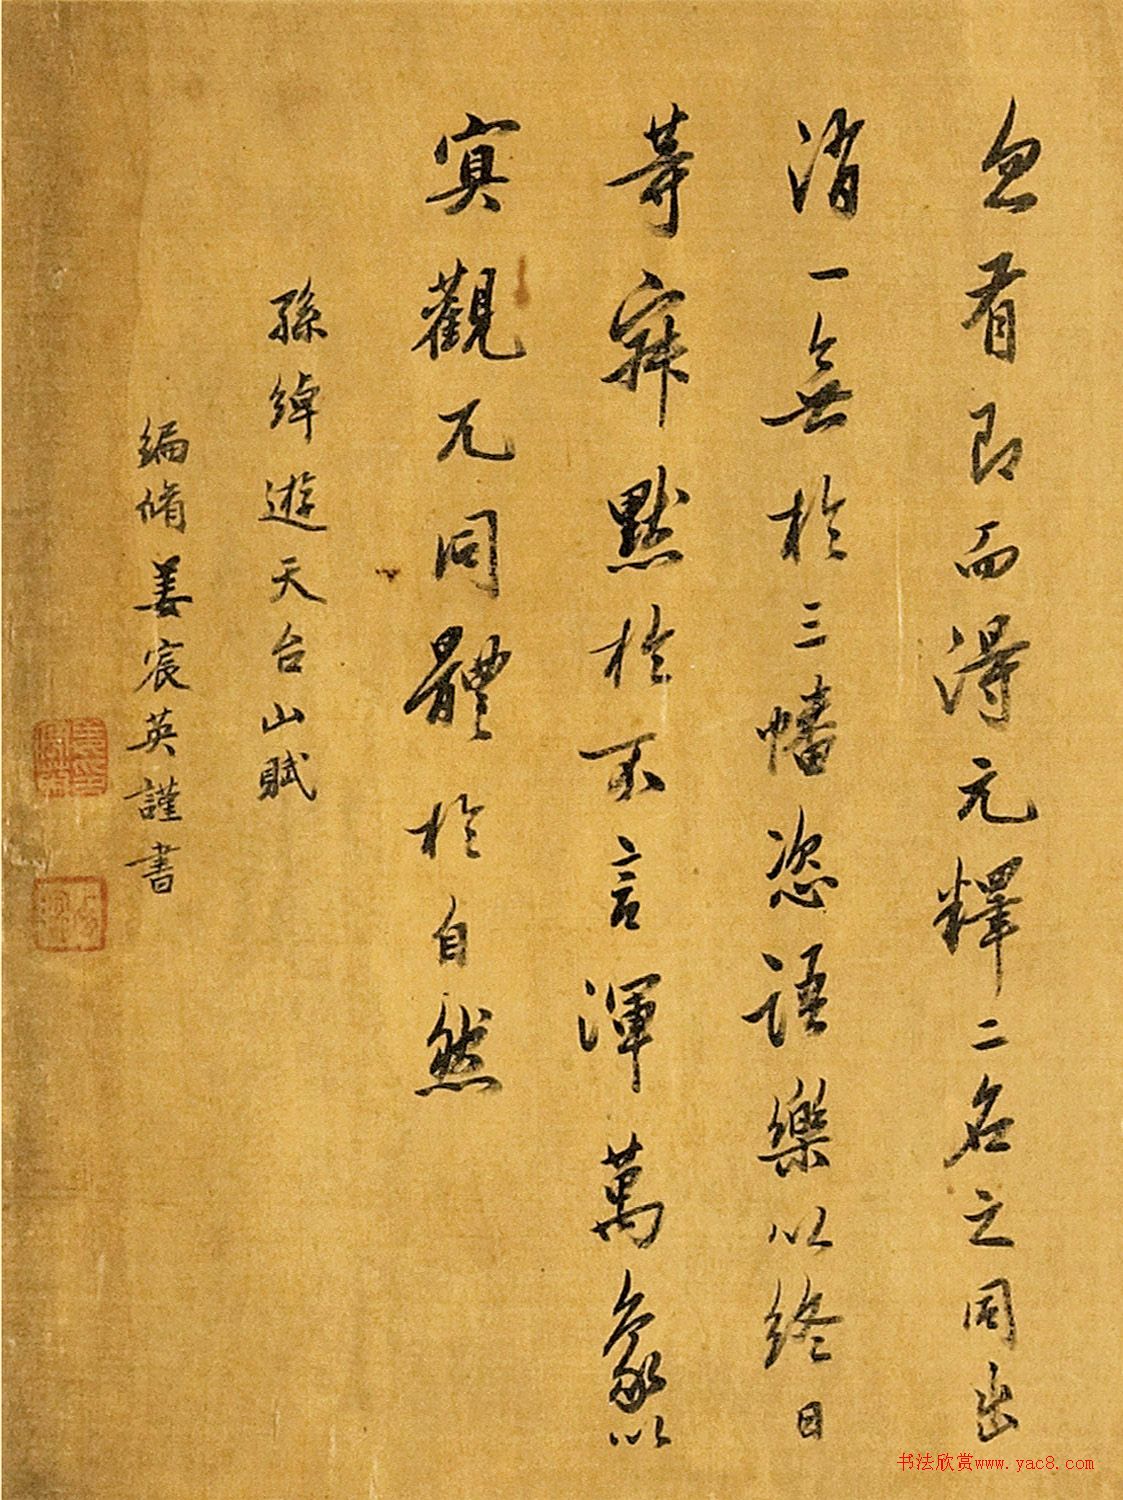 忽有即而得元釋二名之同出
消一無於三幡恣語樂以終日
等寂默於不言渾萬象以
冥觀兀同體於自然
孫綽遊天台山賦
編脩姜宸英謹書
书法欣赏www.yac8.com